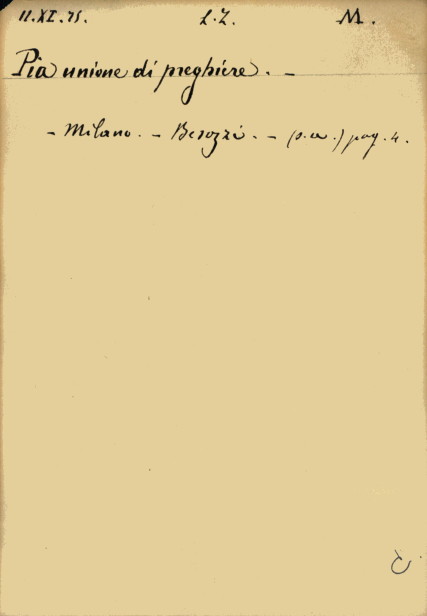 11.XI.75. L.Z. M.
Pia unione di preghiere. –
– Milano. – Besozzi. – (s.a.) pag. 4.